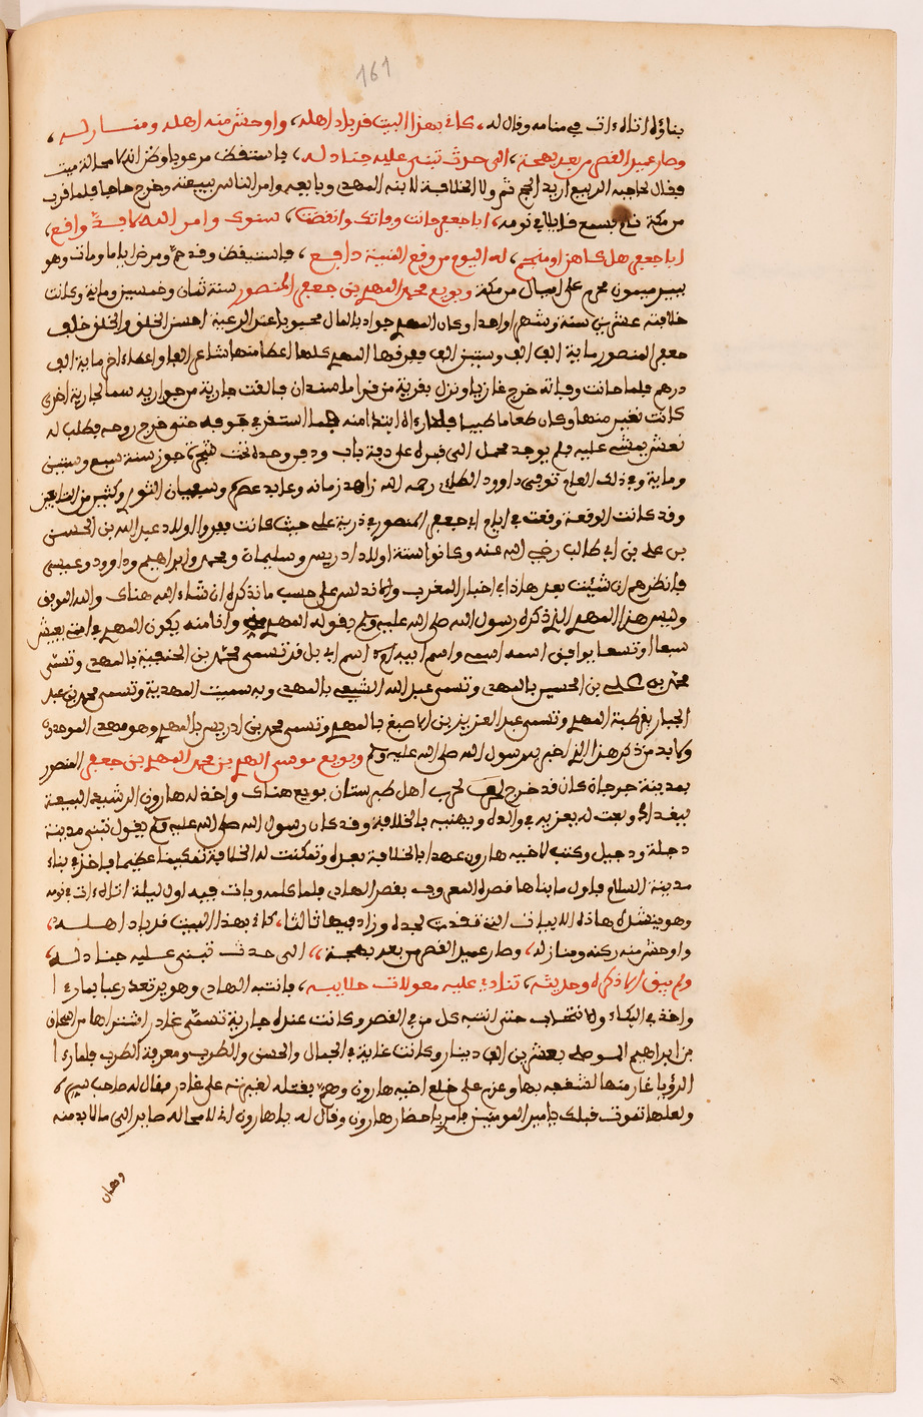 161
بناؤه اتاه ءات في منامه وقال له، كاني بهذا البيت قد باد اهله، واوحش منه اهله ومنازله،
وصار عميد القصر من بعد بهجة، الى حدث تبنى عليه جنادله، فاستيقظ مرعوبا وظن انه لا محالة ميت
فقال لحاجبه الربيع اريد الحج ثم ولا الخلافة لابنه المهدي وبايعه وامر الناس ببيعته وخرج حاجا فلما قرب
من مكة نام فسمع قايلا في نومه، ابا جعفر حانت وفاتك وانقضت، سنوك وامر الله لا بد واقع،
ابا جعفر هل كاهن او منجم، له اليوم من وقع المنية دافع، فاستيقظ وقد حم ومرض اياما ومات وهو
ببير ميمون محرم على اميال من مكة وبويع محمد المهدي بن جعفر المنصور سنة ثمان وخمسين وماية وكانت
خلافته عشر سنة وشهرا واحدا وكان المهدي جوادا بالمال محبوبا عند الرعية احسن الخلق والخلق خلف
جعفر المنصور ماية الف الف وستين الف ففرقها المهدي كلها اعطا منها شاعر الفا واعطاء اخر ماية الف
درهم فلما حانت وفاته خرج غازيا ونزل بقرية من قرا ماسندان فالقت جارية من جواريه سما لجارية اخرى
كانت تغير منها وكان طعاما طيبا فلما رءاه ابتدا منه فلما استقر في جوفه حتى خرج روحه فطلب له
نعش يمشى عليه فلم يوجد فحمل الى قبره على دفة باب ودفن وحده تحت شجرة جوز سنة سبع وستين
وماية وفي ذلك العام توفي داوود الطاءي رحمه الله زاهد زمانه وعابد عصره وسفيان الثوري وكثير من التابعين
وقد كانت الوقعة وقعت في ايام ابي جعفر المنصور في ذرية علي حيث كانت بفروا الاولاد عبد الله بن الحسن
بن علي بن ابي طالب رضي الله عنه وكانوا ستة اولاد ادريس وسليمان ومحمد وابراهيم وداوود وعيسى
فانظرهم ان شئت بعد هاذا في اخبار المغرب والاندلس على حسب ما نذكره ان شاء الله هناك والله الموفق
وليس هذا المهدي الذي ذكره رسول الله صلى الله عليه وسلم بقوله المهدي مني وانا منه يكون المهدي في امتي يعيش
سبعا او تسعا يوافق اسمه اسمي واسم ابيه اسم ابي بل قد تسمى محمد بن الحنفية بالمهدي وتسمى
محمد بن علي بن الحسين بالمهدي وتسمى عبد الله الشيعي بالمهدي وبه سميت المهدية وتسمى محمد بن عبد
الجبار بقرطبة المهدي وتسمى عبد العزيز بن الاصبغ بالمهدي وتسمى محمد بن ادريس بالمهدي وهو مهدي الموحدين
ولا بد من ذكر هذا الذي اخبر به رسول الله صلى الله عليه وسلم وبويع موسى الهادي بن محمد المهدي بن جعفر المنصور
بمدينة جرجان كان قد خرج لحرب اهل طبرستان بويع هناك واخذ له هارون الرشيد البيعة
ببغداد وبعث له يعزيه في والده ويهنيه بالخلافة وقد كان رسول الله صلى الله عليه وسلم يقول تبنى مدينة
دجلة ودجيل وكتب لاخيه هارون عهدا بالخلافة بعده وتمكنت له الخلافة تمكينا عظيما فاخذ في بناء
مدينة السلام فاول ما بناها قصره المعروف بقصر الهادي فلما كمله وبات فيه اول ليلة اتاه ءات في نومه
وهو ينشده هاذه الابيات التي تقدمت لجده وزاد فيها ثالثا، كاني بهذا البيت قد باد اهله،
واوحش منه ركنه ومنازله، وصار عميد القصر من بعد بهجة، الى حدث تبنى عليه جنادله،
ولم يبق الا ذكره وحديثه، تنادي عليه معولات حلايبه، فانتبه الهادي وهو يرتعد رعبا بما رءا
واخذ في البكاء والانتحاب حتى انتبه كل من في القصر وكانت عنده جارية تسمى غادر اشتراها من اسحاق
بن ابراهيم الموصلي بعشرين الف دينار وكانت غاية في الجمال والحسن والطرب ومعرفة الطرب فلما رءا
الرؤيا غار منها لشغفه بها وعزم على خلع اخيه هارون وهم بقتله لغيرته على غادر فقال له صاحب سره لا
ولعلها تموت قبلك يا امير المومنين فامر باحضار هارون وقال له يا هارون اني لا محالة صاير الى ما لا بد منه
وكان